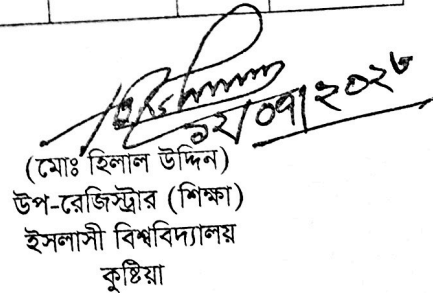 ১২/০৭/২০২৬
(মোঃ হিলাল উদ্দিন)
উপ-রেজিস্ট্রার (শিক্ষা)
ইসলামী বিশ্ববিদ্যালয়
কুষ্টিয়া